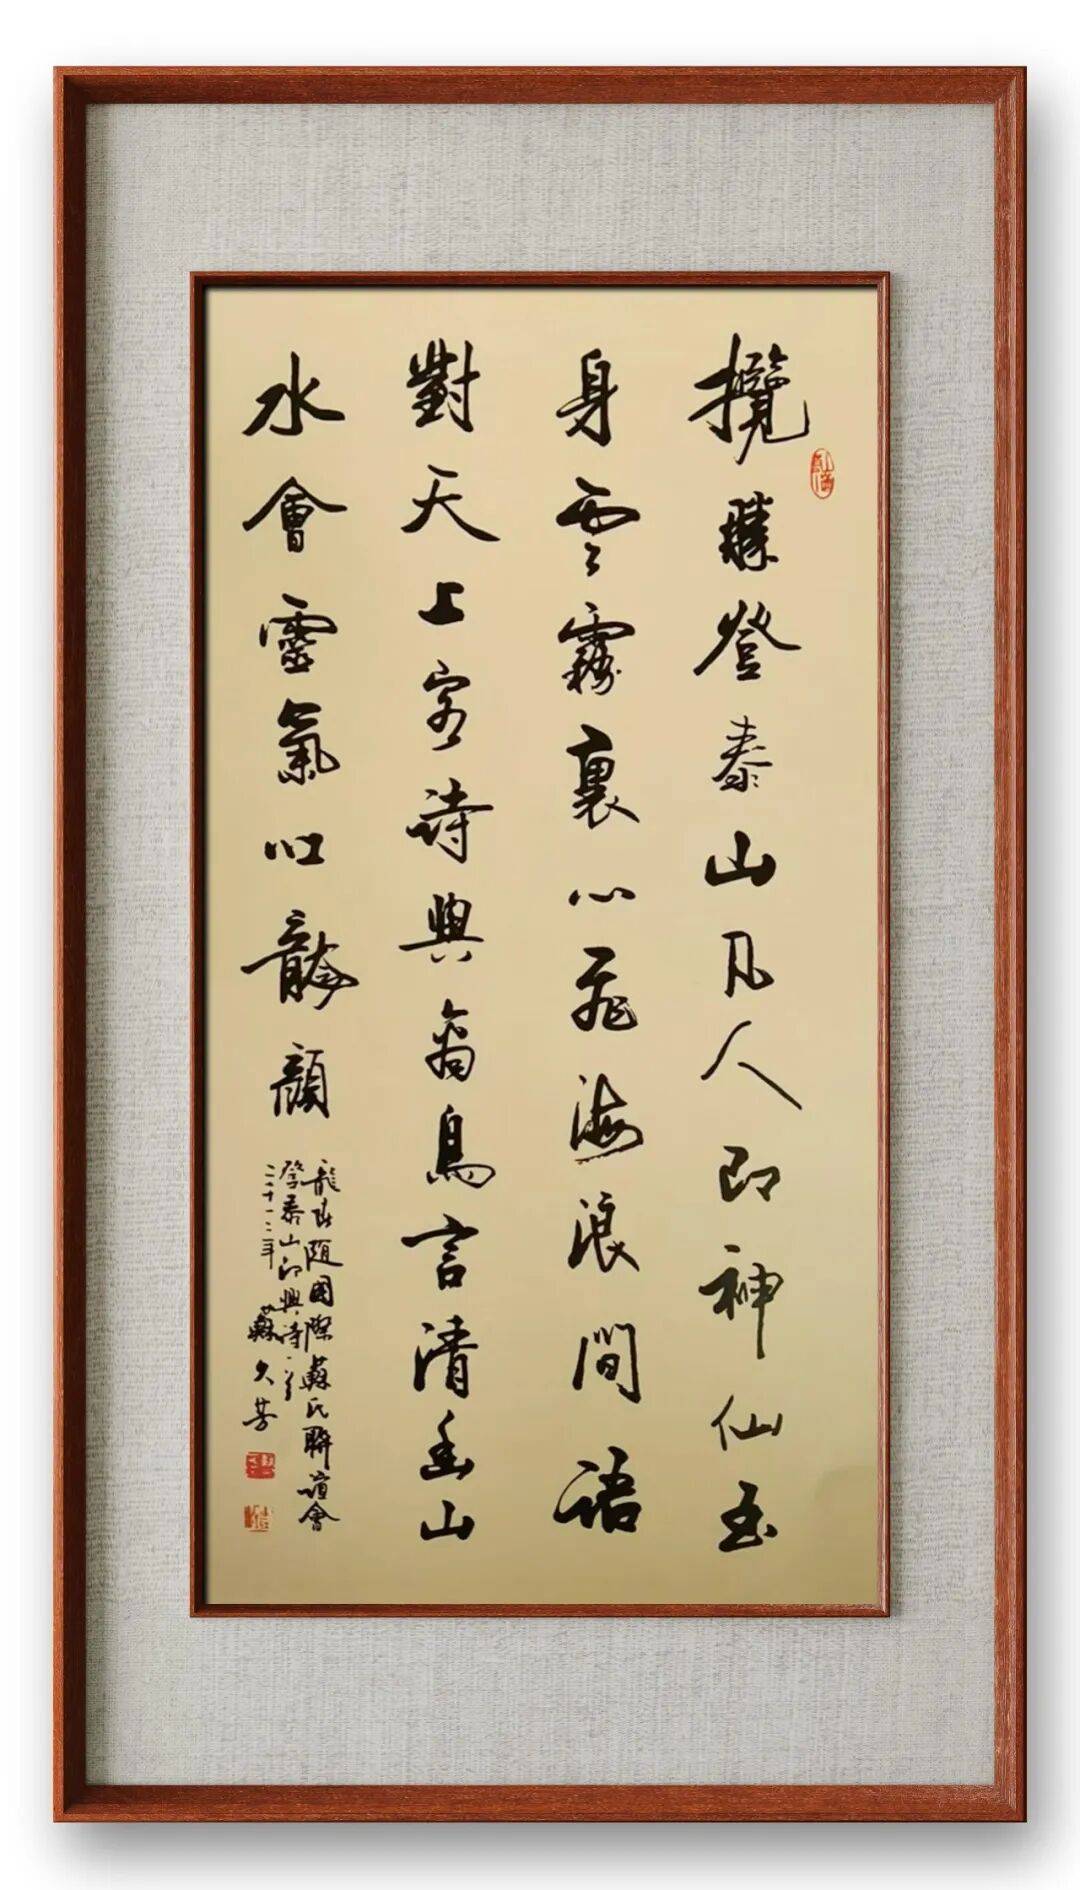 攬勝登泰山凡人即神仙玉
身雲霧裏心飛海浪間語
對天上客詩與禽鳥言清幽山
水會靈氣以龍顏
龍年隨國際蘇氏聯誼會
登泰山即興詩一首
蘇久芳